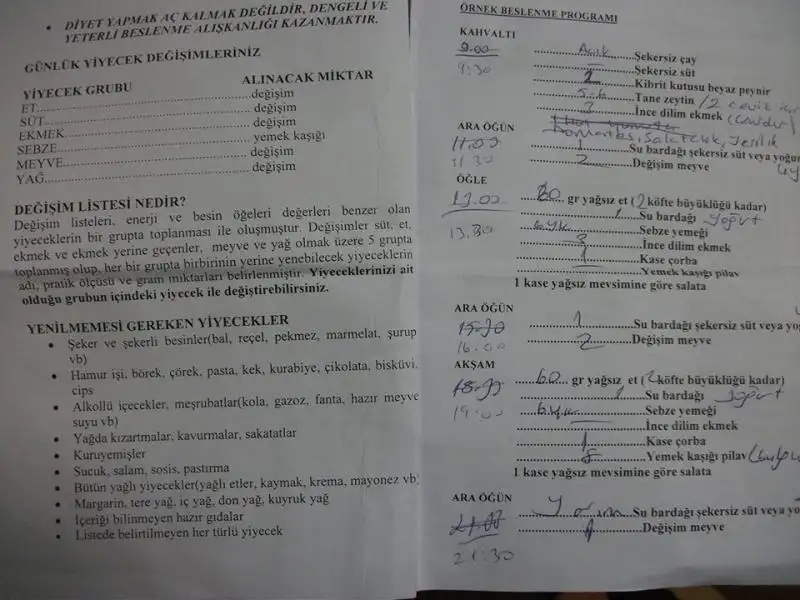 • DİYET YAPMAK AÇ KALMAK DEĞİLDİR, DENGELİ VE
YETERLİ BESLENME ALIŞKANLIĞI KAZANMAKTIR.
GÜNLÜK YİYECEK DEĞİŞİMLERİNİZ
YİYECEK GRUBU ALINACAK MİKTAR
ET...değişim
SÜT...değişim
EKMEK...değişim
SEBZE...yemek kaşığı
MEYVE...değişim
YAĞ...değişim
DEĞİŞİM LİSTESİ NEDİR?
Değişim listeleri, enerji ve besin öğeleri değerleri benzer olan
yiyeceklerin bir grupta toplanması ile oluşmuştur. Değişimler süt, et,
ekmek ve ekmek yerine geçenler, meyve ve yağ olmak üzere 5 grupta
toplanmış olup, her bir grupta birbirinin yerine yenebilecek yiyeceklerin
adı, pratik ölçüsü ve gram miktarları belirlenmiştir. Yiyeceklerinizi ait
olduğu grubun içindeki yiyecek ile değiştirebilirsiniz.
YENİLMEMESİ GEREKEN YİYECEKLER
• Şeker ve şekerli besinler(bal, reçel, pekmez, marmelat, şurup
vb)
• Hamur işi, börek, çörek, pasta, kek, kurabiye, çikolata, bisküvi,
cips
• Alkollü içecekler, meşrubatlar(kola, gazoz, fanta, hazır meyve
suyu vb)
• Yağda kızartmalar, kavurmalar, sakatatlar
• Kuruyemişler
• Sucuk, salam, sosis, pastırma
• Bütün yağlı yiyecekler(yağlı etler, kaymak, krema, mayonez vb)
• Margarin, tere yağ, iç yağ, don yağ, kuyruk yağ
• İçeriği bilinmeyen hazır gıdalar
• Listede belirtilmeyen her türlü yiyecek
ÖRNEK BESLENME PROGRAMI
KAHVALTI
9.00 ...Açık...Şekersiz çay
9:30 ...Şekersiz süt
...2...Kibrit kutusu beyaz peynir
...5-6...Tane zeytin /2 ceviz içi
...3...İnce dilim ekmek (Çavdar)
Domates, Salatalık, yeşillik
ARA ÖĞÜN
11.00 ...1...Su bardağı şekersiz süt veya yoğurt
11.30 ...2...Değişim meyve
ÖĞLE
13.00 ...60...gr yağsız et (2 köfte büyüklüğü kadar)
...1...Su bardağı yoğurt
13.30 ...6 y.k...Sebze yemeği
...3...İnce dilim ekmek
...1...Kase çorba
...Yemek kaşığı pilav
1 kase yağsız mevsimine göre salata
ARA ÖĞÜN
...1...Su bardağı şekersiz süt veya yo
16.00 ...2...Değişim meyve
AKŞAM
...60...gr yağsız et (2 köfte büyüklüğü kadar)
...1...Su bardağı yoğurt
19.00 ...6 y.k...Sebze yemeği
...İnce dilim ekmek
...1...Kase çorba
...8...Yemek kaşığı pilav
1 kase yağsız mevsimine göre salata
ARA ÖĞÜN
...Yarım...Su bardağı şekersiz süt veya yo
...1...Değişim meyve
21:30